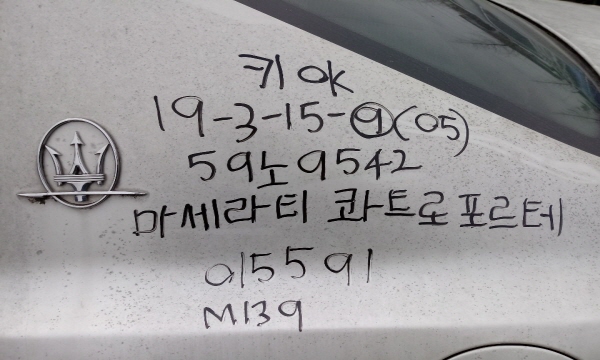 키 OK
19-3-15-⑨(05)
59노9542
마세라티 콰트로포르테
015591
M139